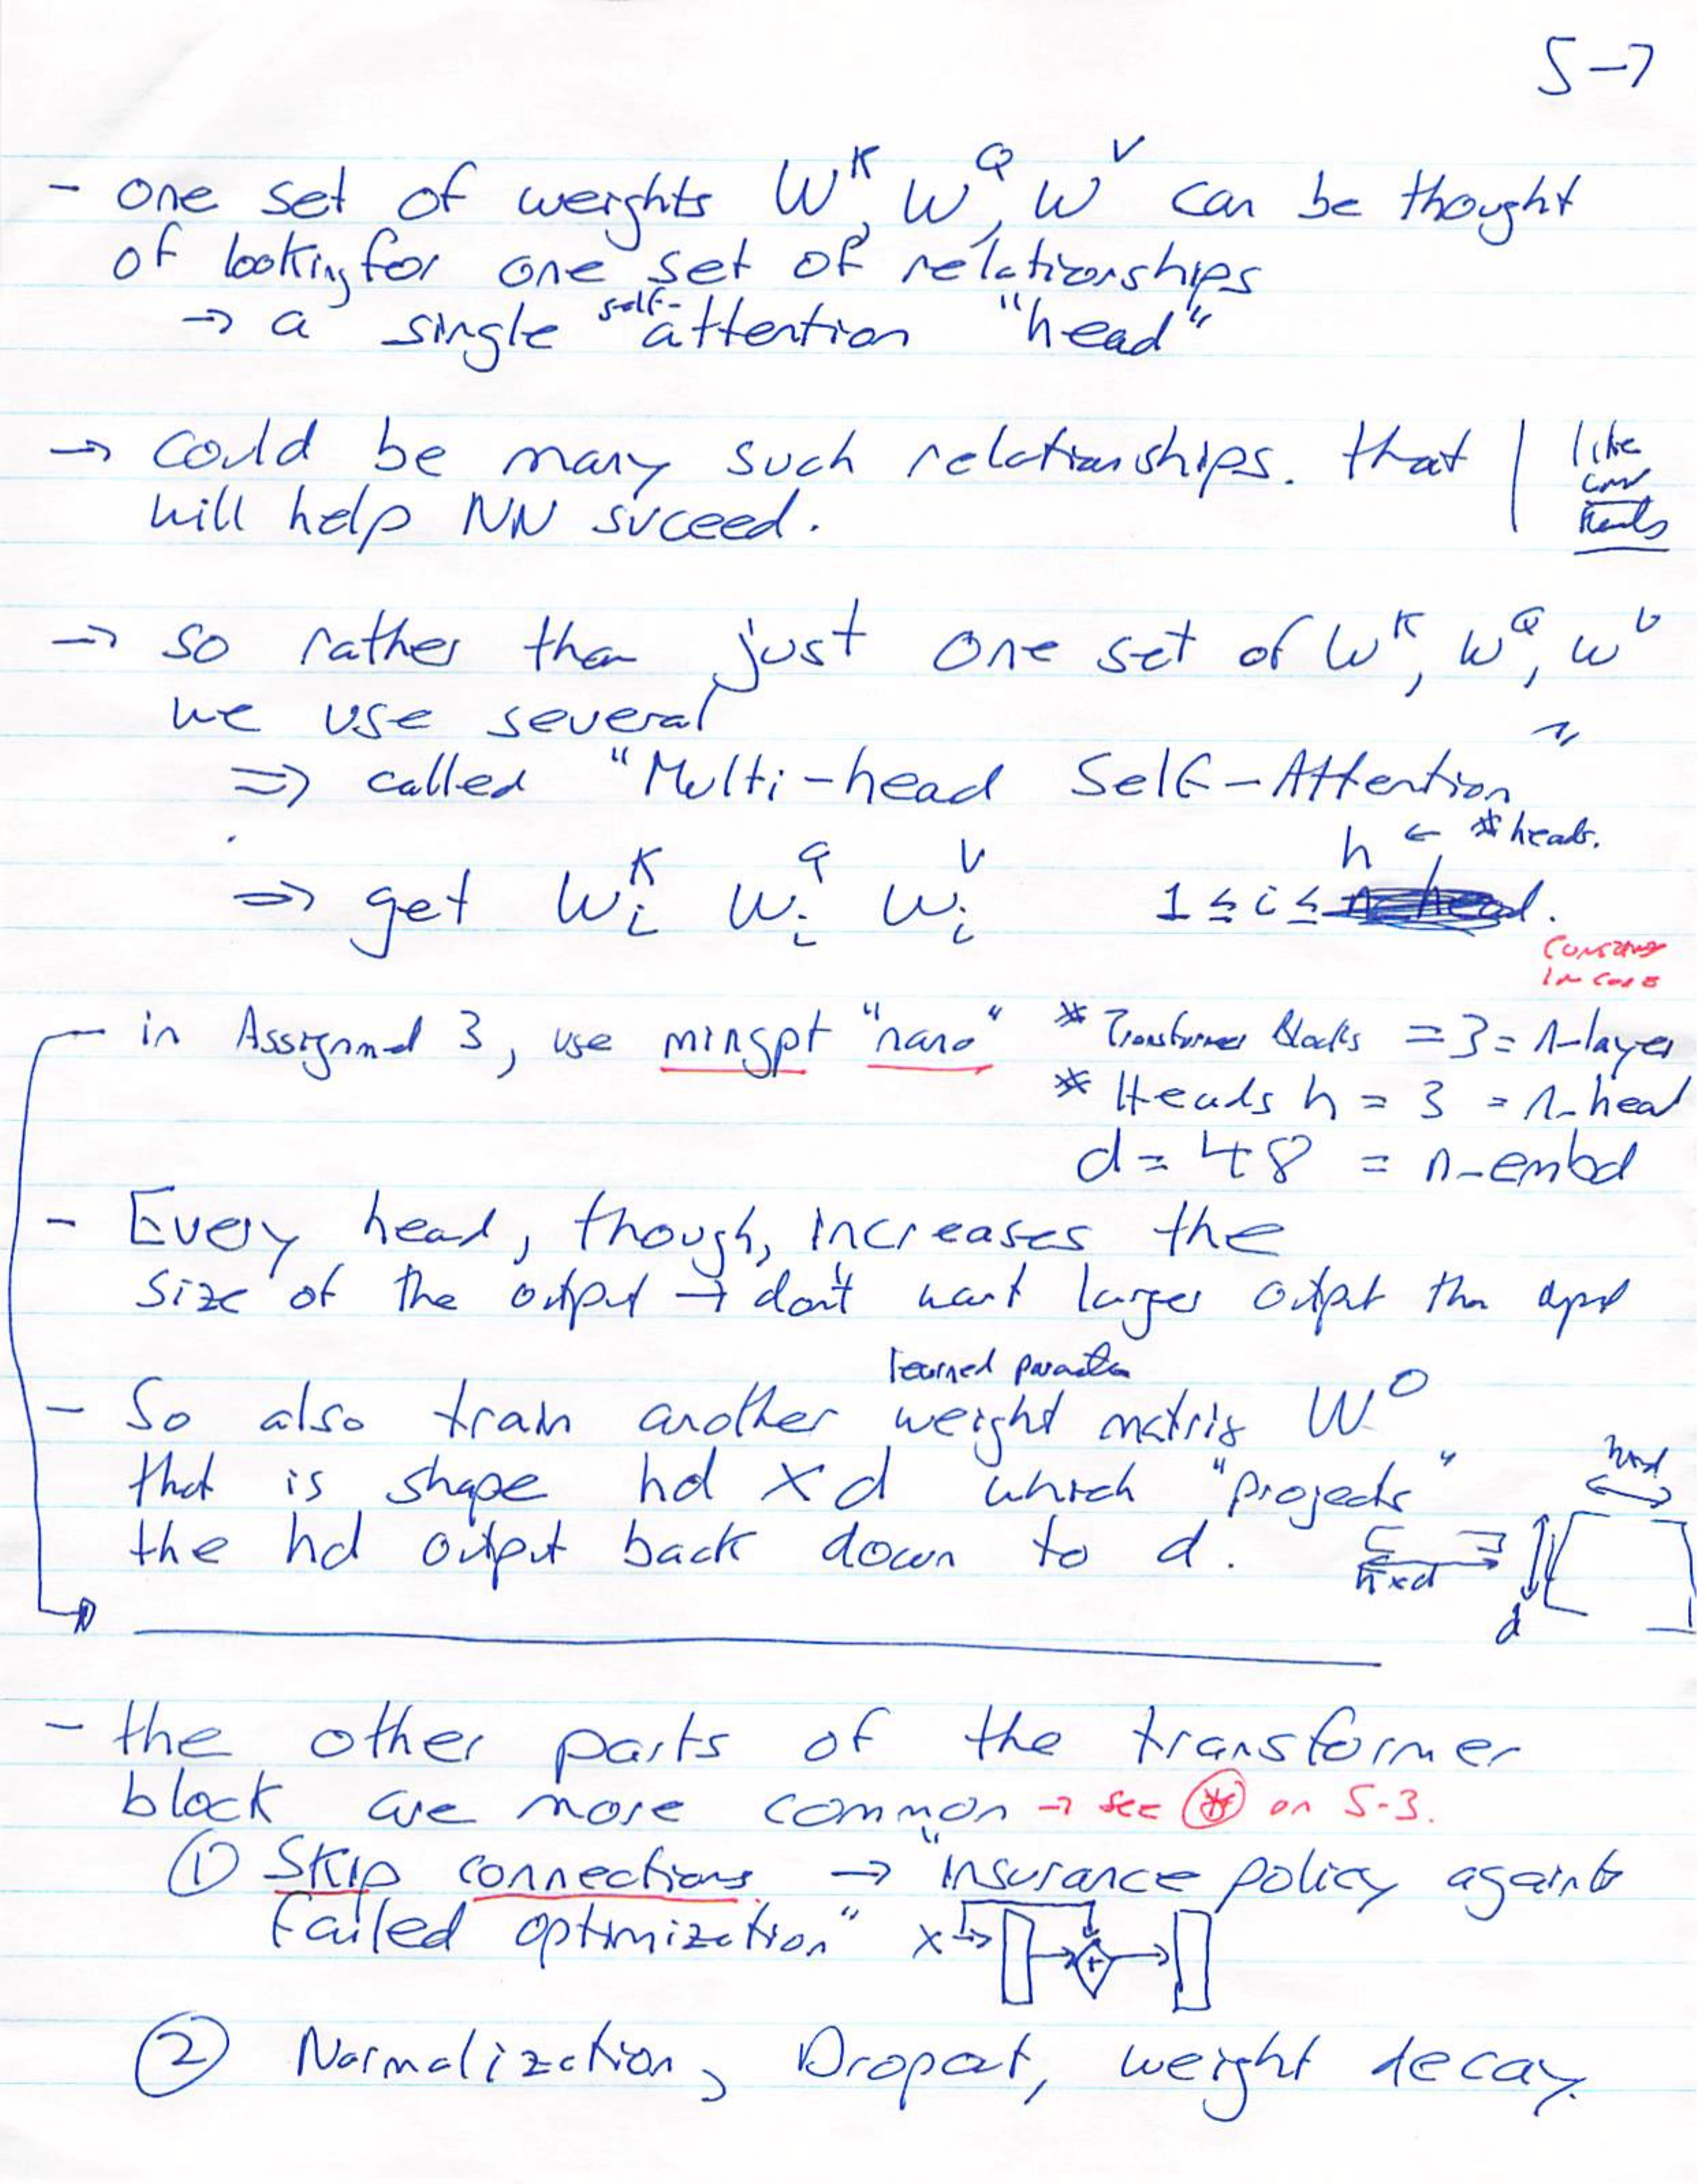 5-7
- one set of weights W^K, W^Q, W^V can be thought
of looking for one set of relationships
→ a single self-attention "head"
→ could be many such relationships. that | like
will help NN suceed.
→ so rather than just one set of W^K, W^Q, W^V
we use several
⇒ called "Multi-head Self-Attention"
h ← # heads.
⇒ get W_i^K W_i^Q W_i^V 1 ≤ i ≤ .
in code
- in Assignment 3, use mingpt "nano" # Transformer Blocks = 3 = n-layer
# Heads h = 3 = n-head
d = 48 = n-embd
- Every head, though, increases the
size of the output → don't want larger output than
learned
- So also train another weight matrix W^O
that is shape hd x d which "projects"
the hd output back down to d.
hxd
d
- the other parts of the transformer
block are more common → see * on 5-3.
① Skip connections → "insurance policy against
failed optimization" x + 
② Normalization, Dropout, weight decay.